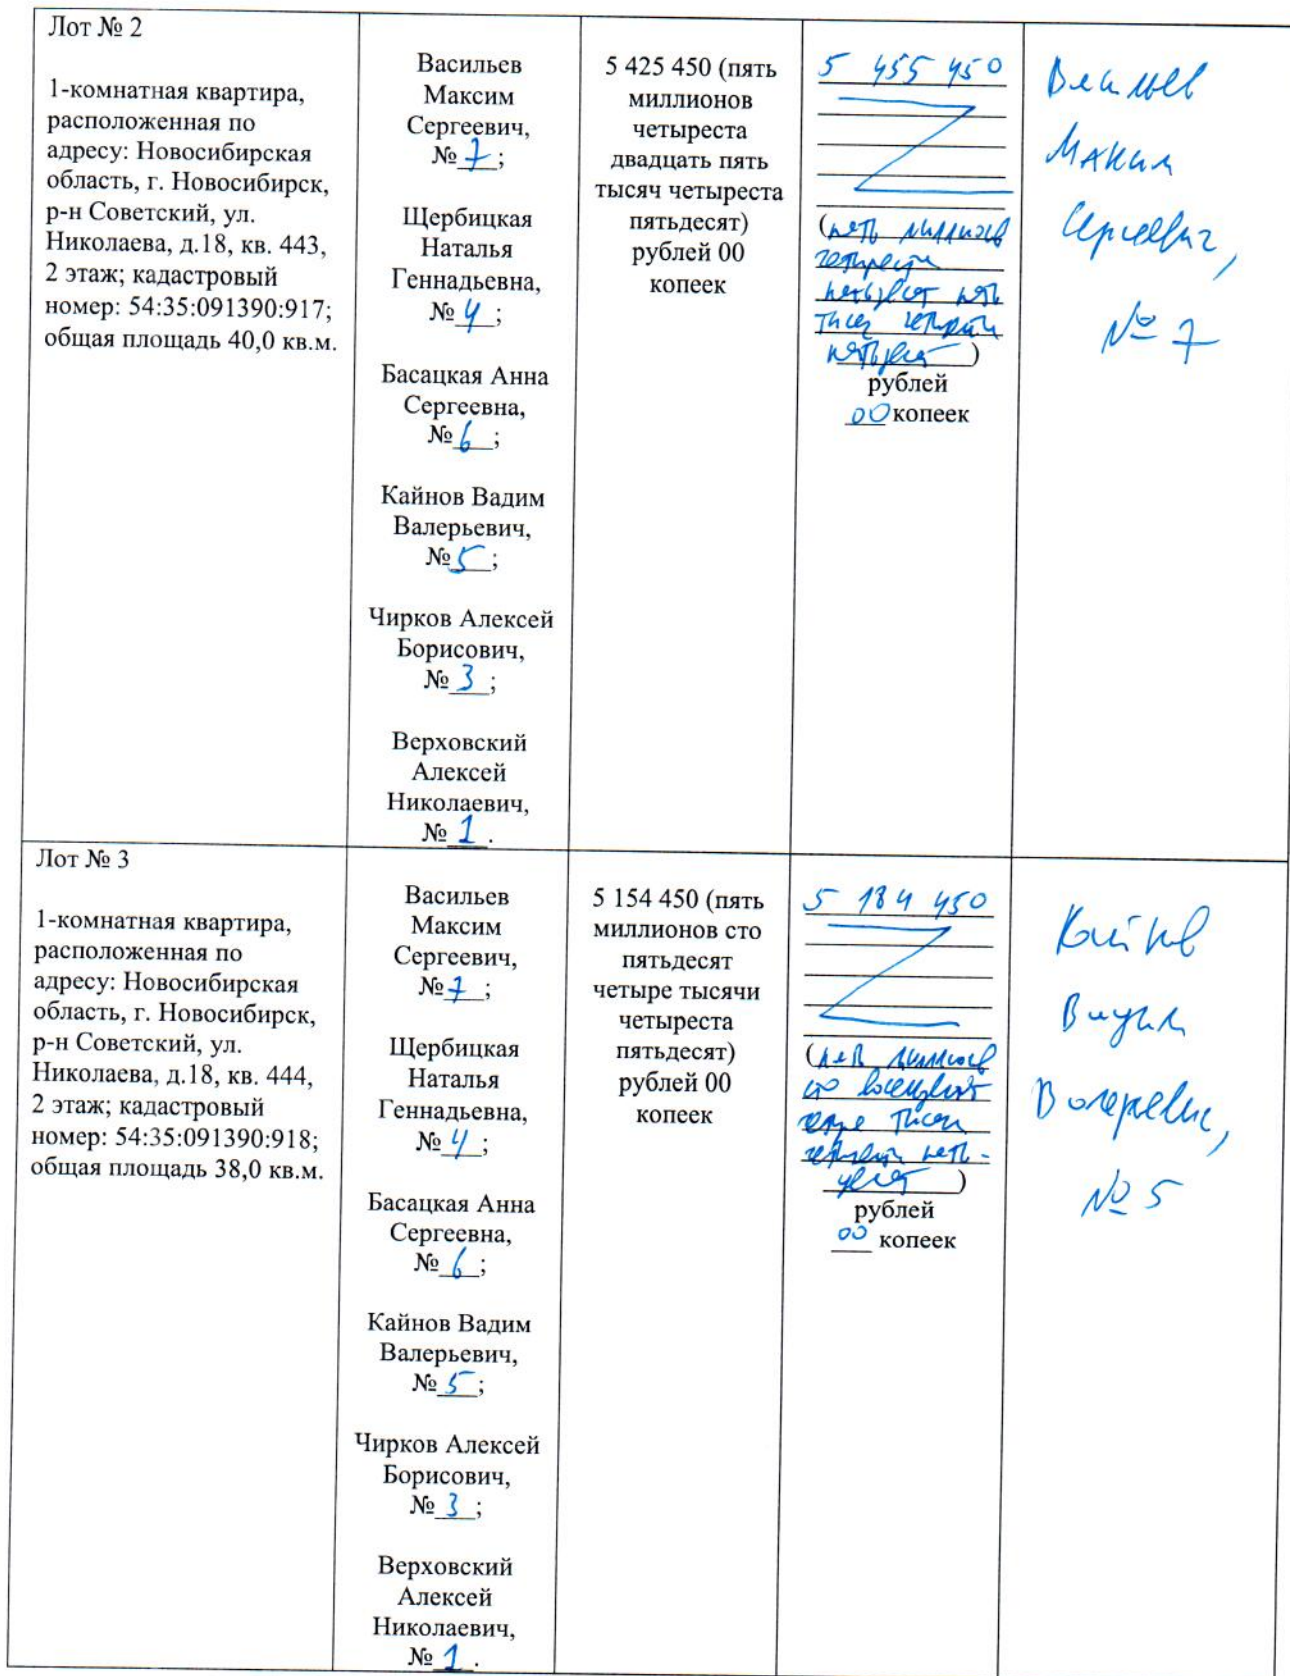 Лот № 2
1-комнатная квартира,
расположенная по
адресу: Новосибирская
область, г. Новосибирск,
р-н Советский, ул.
Николаева, д.18, кв. 443,
2 этаж; кадастровый
номер: 54:35:091390:917;
общая площадь 40,0 кв.м.
Васильев
Максим
Сергеевич,
№ 7 ;
Щербицкая
Наталья
Геннадьевна,
№ 4 ;
Басацкая Анна
Сергеевна,
№ 6 ;
Кайнов Вадим
Валерьевич,
№ 5 ;
Чирков Алексей
Борисович,
№ 3 ;
Верховский
Алексей
Николаевич,
№ 1 .
5 425 450 (пять
миллионов
четыреста
двадцать пять
тысяч четыреста
пятьдесят)
рублей 00
копеек
5 455 450
(пять миллионов
четыреста
пятьдесят пять
тысяч четыреста
пятьдесят )
рублей
00 копеек
Васильев
Максим
Сергеевич,
№ 7
Лот № 3
1-комнатная квартира,
расположенная по
адресу: Новосибирская
область, г. Новосибирск,
р-н Советский, ул.
Николаева, д.18, кв. 444,
2 этаж; кадастровый
номер: 54:35:091390:918;
общая площадь 38,0 кв.м.
Васильев
Максим
Сергеевич,
№ 7 ;
Щербицкая
Наталья
Геннадьевна,
№ 4 ;
Басацкая Анна
Сергеевна,
№ 6 ;
Кайнов Вадим
Валерьевич,
№ 5 ;
Чирков Алексей
Борисович,
№ 3 ;
Верховский
Алексей
Николаевич,
№ 1 .
5 154 450 (пять
миллионов сто
пятьдесят
четыре тысячи
четыреста
пятьдесят)
рублей 00
копеек
5 184 450
(пять миллионов
сто восемьдесят
четыре тысячи
четыреста пять-
десят )
рублей
00 копеек
Кайнов
Вадим
Валерьевич,
№ 5